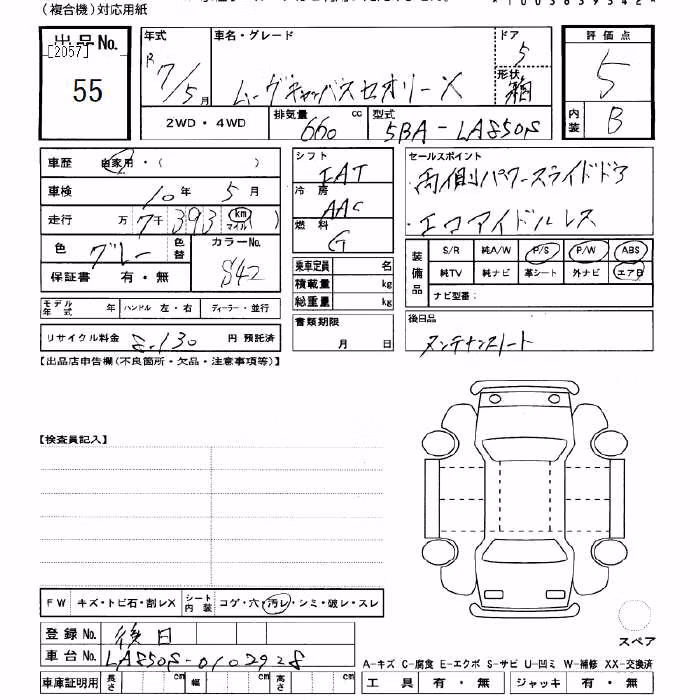 (複合機)対応用紙
出品No.
[2057]
55
年式 R 7/5月
車名・グレード ムーヴキャンバスセオリーX
ドア 5
形状 箱
評価点 5
内装 B
2WD・4WD
排気量 660 cc
型式 5BA-LA850S
車歴 自家用・( )
車検 10年 5月
走行 万 7千 393 km マイル )
色 グレー 色替
カラーNo. S42
保証書 有・無
モデル年式 年 ハンドル 左・右 ディーラー・並行
リサイクル料金 8.130 円 預託済
シフト IAT
冷房 AAC
燃料 G
乗車定員 名
積載量 kg
総重量 kg
書類期限
月 日
セールスポイント
・両側パワースライドドア
・エコアイドルレス
装備品 S/R 純A/W P/S P/W ABS
純TV 純ナビ 革シート 外ナビ エアB
ナビ型番:
後日品
メンテナンスノート
【出品店申告欄(不良箇所・欠品・注意事項等)】
【検査員記入】
FW キズ・トビ石・割レX シート内装 コゲ・穴・汚レ・シミ・破レ・スレ
登録No. 後日
車台No. LA850S-0102928
車庫証明用 長さ cm 幅 cm 高さ cm
スペア
A-キズ C-腐食 E-エクボ S-サビ U-凹ミ W-補修 XX-交換済
工具 有・無 ジャッキ 有・無